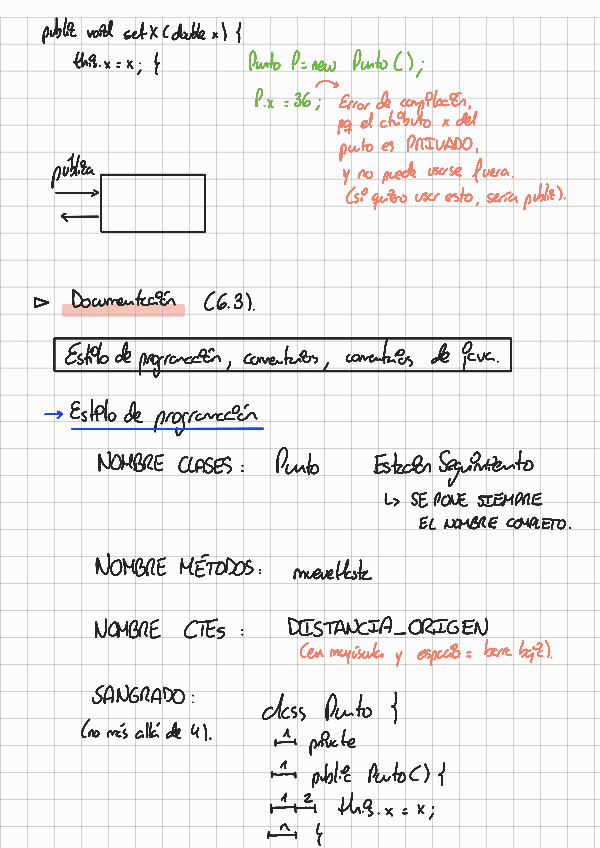 public void setX (double x) {
this.x = x; {
Punto P = new Punto ();
P.x = 36; Error de compilación,
pq el atributo x del
punto es PRIVADO,
y no puede usarse fuera.
(si quiero usar esto, sería public).
pública
▷ Documentación (6.3).
Estilo de programación, comentarios, comentarios de java.
→ Estilo de programación
NOMBRE CLASES: Punto Estación Seguimiento
↳ SE PONE SIEMPRE
EL NOMBRE COMPLETO.
NOMBRE MÉTODOS: mueveHasta
NOMBRE CTEs: DISTANCIA_ORIGEN
(en mayúscula y espacio = barra baja).
SANGRADO: class Punto {
(no más allá de 4). 1 private
1 public Punto() {
1 2 this.x = x;
1 {